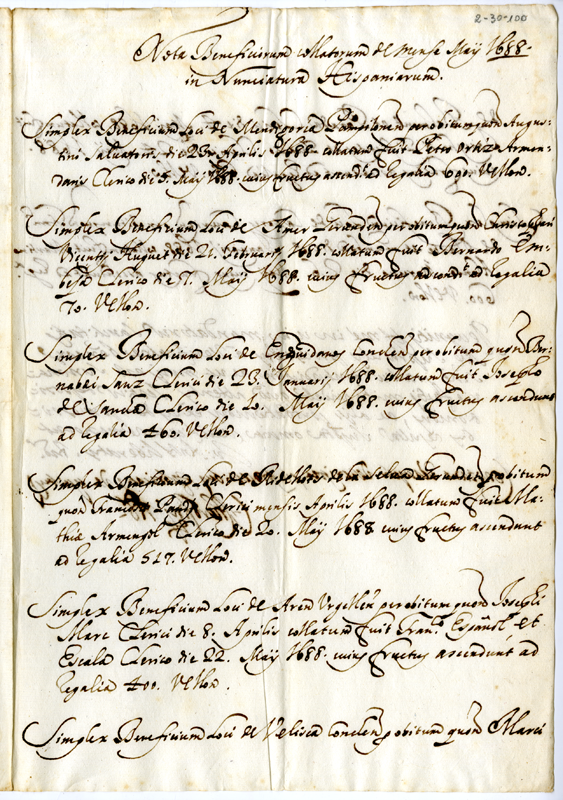 2-30-100
Nota Beneficiorum collatorum de mense Maÿ 1688.
in Nunciatura Hispaniarum.
Simplex Beneficium Loci de Mendigorria Pampilonen per obitum quon Augus-
tini Salvatoris die 23. Aprilis 1688. collatum fuit Petro Ortiz Armen-
daris Clerico die 5. Maÿ 1688. cuius fructus ascendunt ad Regalia 690. Vellon.
Simplex Beneficium Loci de Amer Gerunden per obitum quon Christophori
Vicentÿ Huguet die 21. Februarÿ 1688. collatum fuit Bernardo
Clerico die 7. Maÿ 1688. cuius fructus ascendunt ad Regalia
70. Vellon.
Simplex Beneficium Loci de Enguidanos Conchen per obitum quon Ber-
nabei Sanz Clerici die 23. Januarÿ 1688. collatum fuit Josepho
de Clerico die 20. Maÿ 1688. cuius fructus ascendunt
ad Regalia 460. Vellon.
Simplex Beneficium Loci de Riudellots de la Selva Gerunden per obitum
quon Francisci Clerici mensis Aprilis 1688. collatum fuit Ma-
thiæ Armengol Clerico die 20. Maÿ 1688 cuius fructus ascendunt
ad Regalia 517. Vellon.
Simplex Beneficium Loci de Aren Urgellen per obitum quon Josephi
Marc Clerici die 8. Aprilis collatum fuit Fran.co Español et
Escala Clerico die 22. Maÿ 1688. cuius fructus ascendunt ad
Regalia 400. Vellon.
Simplex Beneficium Loci de Velisca Conchen p obitum quon Marci